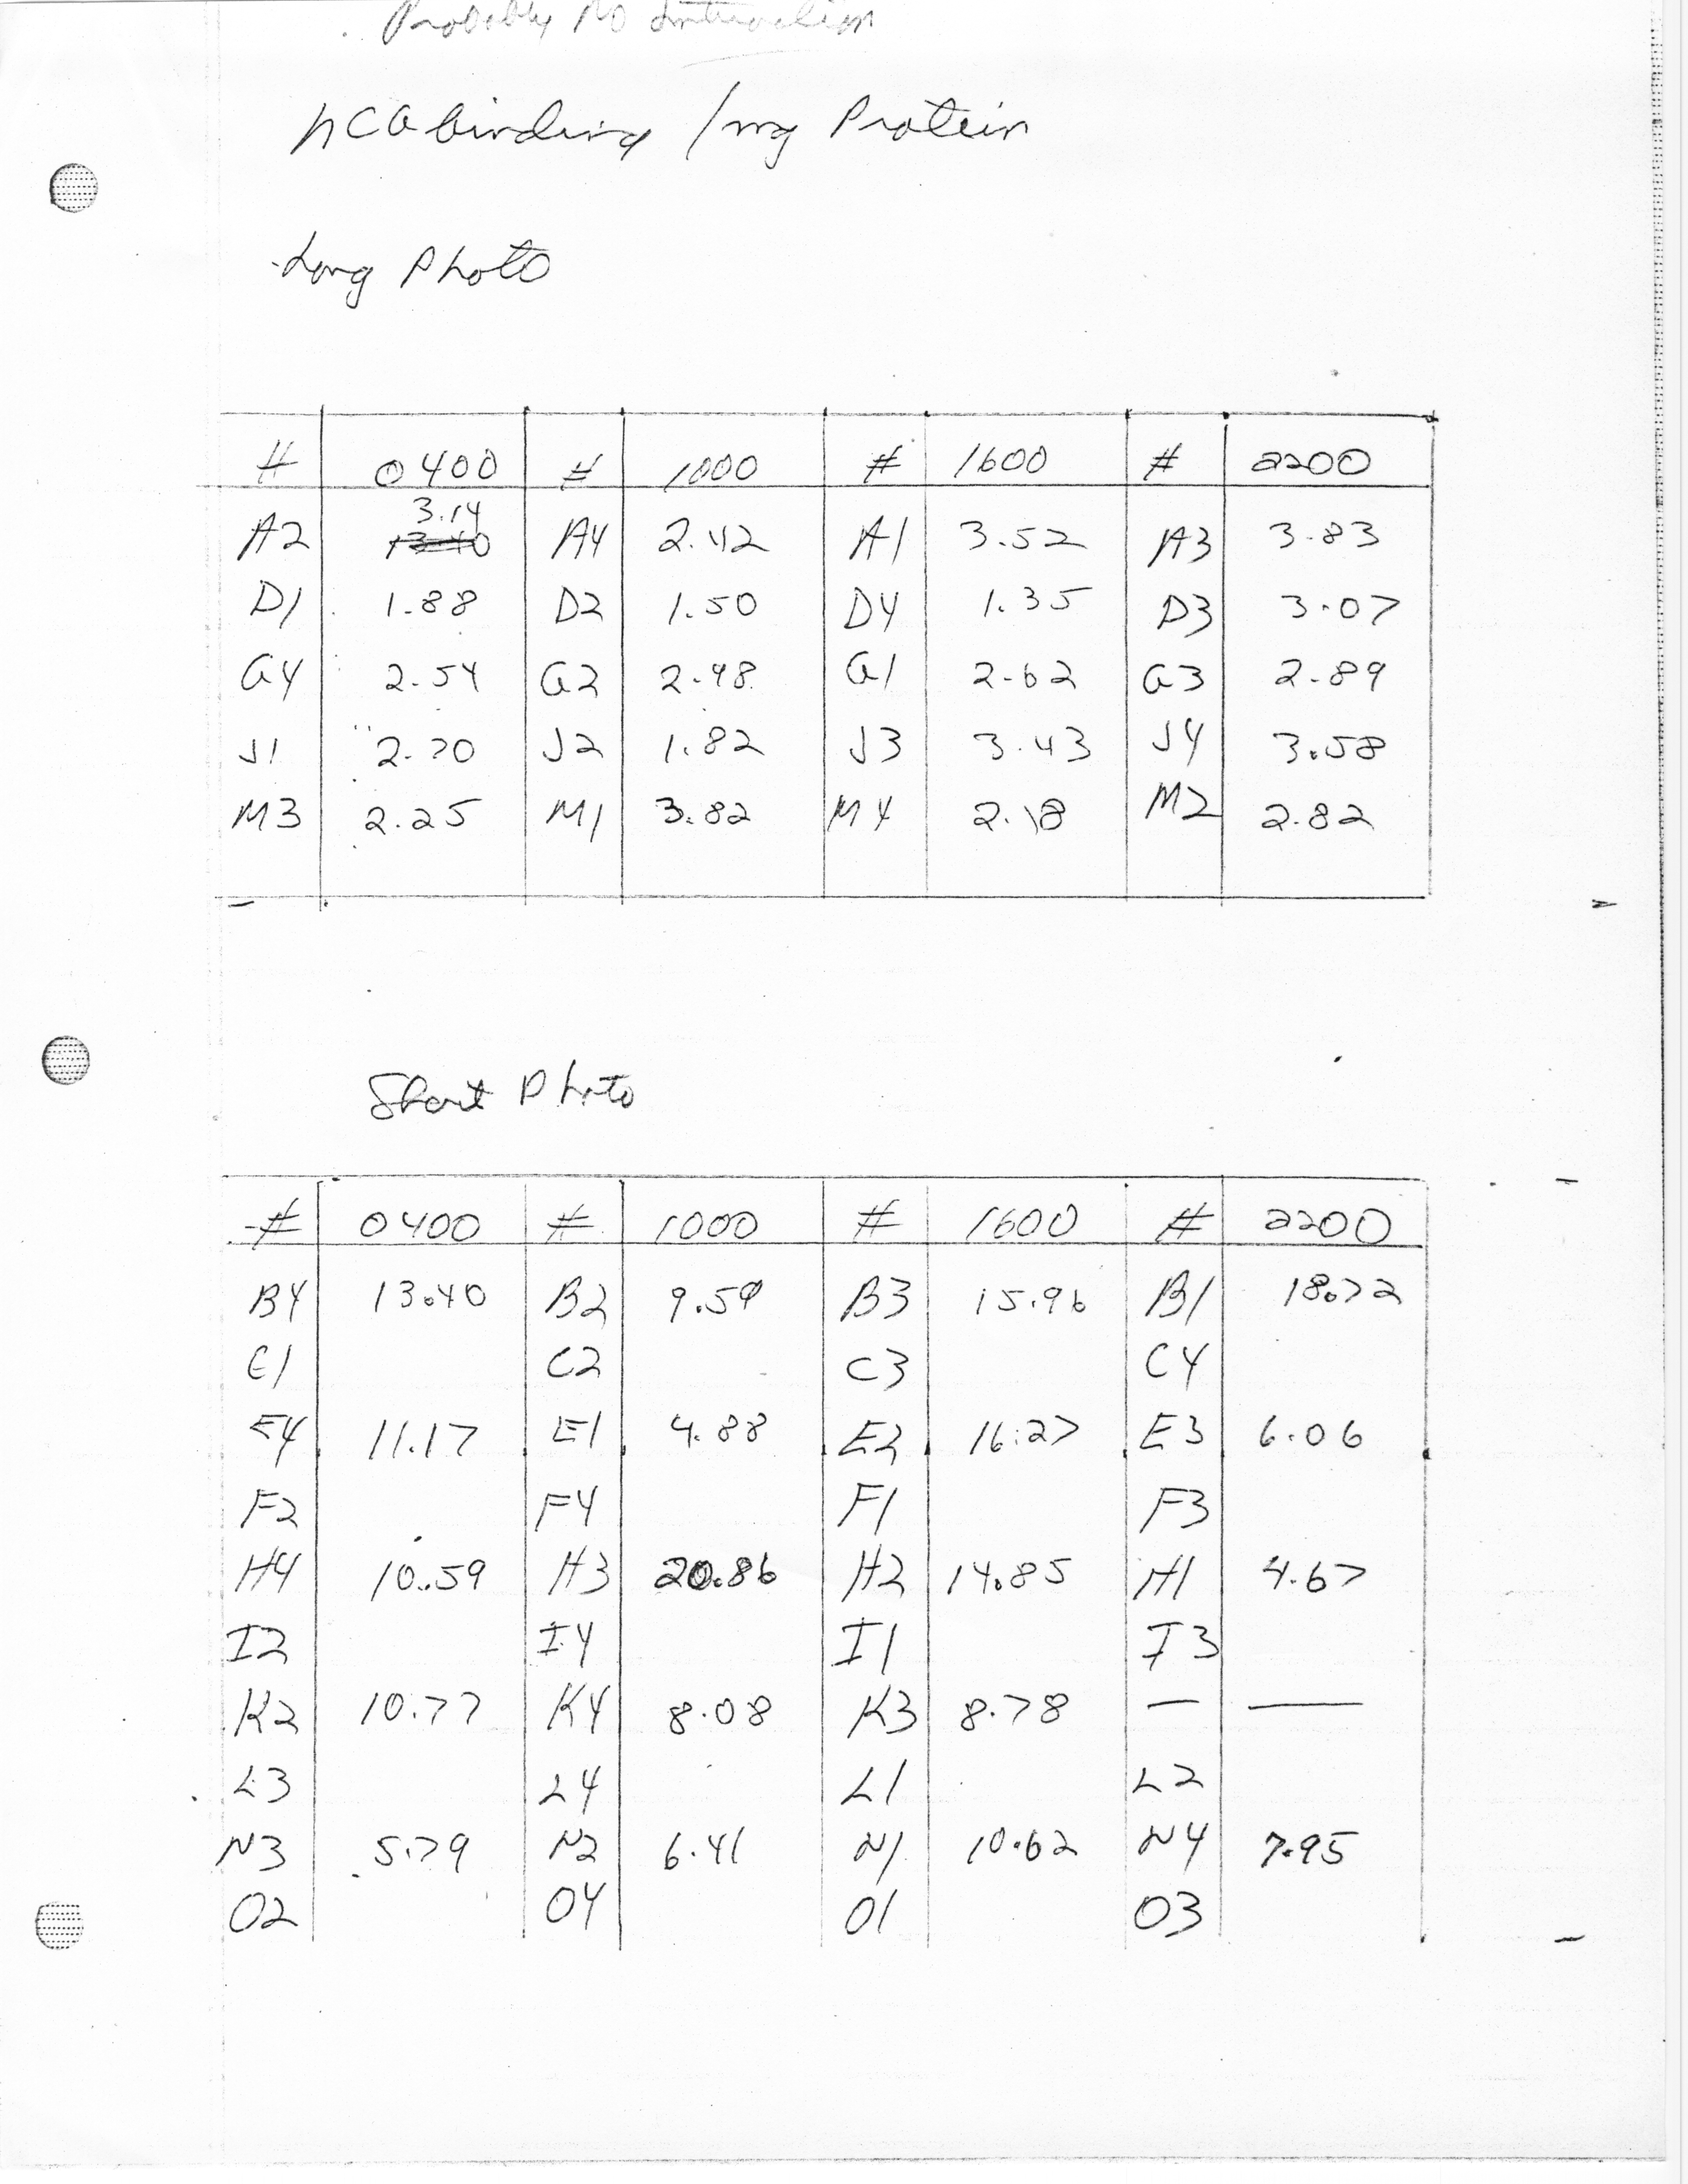 Probably No Interaction
hCG binding /mg Protein
Long Photo
# 0400 # 1000 # 1600 # 2200
3.14
A2 13.40 A4 2.42 A1 3.52 A3 3.83
D1 1.88 D2 1.50 D4 1.35 D3 3.07
G4 2.54 G2 2.98 G1 2.62 G3 2.89
J1 2.70 J2 1.82 J3 3.43 J4 3.58
M3 2.25 M1 3.82 M4 2.18 M2 2.82
Short Photo
# 0400 # 1000 # 1600 # 2200
B4 13.40 B2 9.59 B3 15.96 B1 18.72
C1 C2 C3 C4
E4 11.17 E1 4.88 E2 16.27 E3 6.06
F2 F4 F1 F3
H4 10.59 H3 20.86 H2 14.85 H1 4.67
I2 I4 I1 I3
K2 10.77 K4 8.08 K3 8.78 — —
L3 L4 L1 L2
N3 5.79 N2 6.41 N1 10.62 N4 7.95
O2 O4 O1 O3